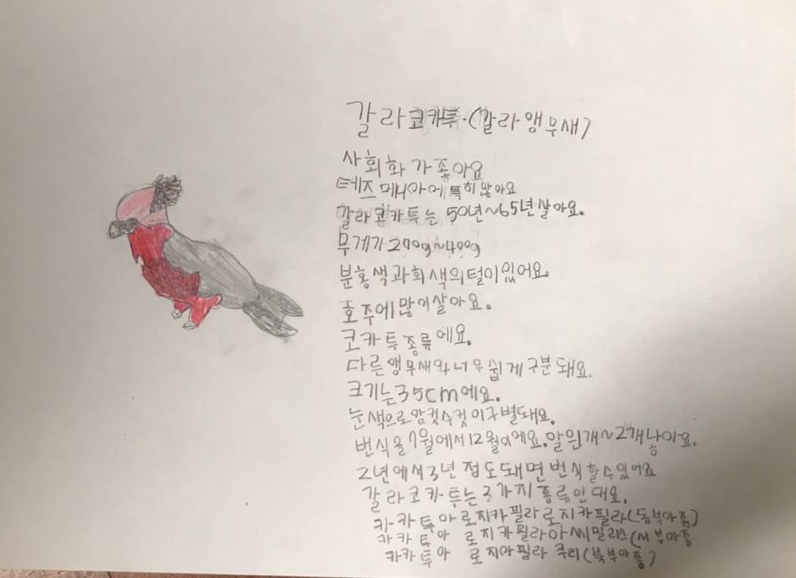 갈라코카투.(갈라앵무새)
사회화가좋아요
테즈메니아에특히많아요
갈라코카투는 50년~65년살아요.
무게가200g~400g
분홍색과회색의털이있어요.
호주에많이살아요.
코카투종류에요.
다른앵무새와너무쉽게구분돼요.
크기는35cm에요.
눈색으로암컷수컷이구별돼요.
번식을7월에서12월이에요.알은1개~2개낭이요.
2년에서3년정도돼면번식할수있어요
갈라코카투는3가지종류인대요.
카카투아로지카필라로지카필라(동부아종)
카카투아 로지카필라아씨밀리스(서부아종
카카투아 로지아필라 쿠리(북부아종)